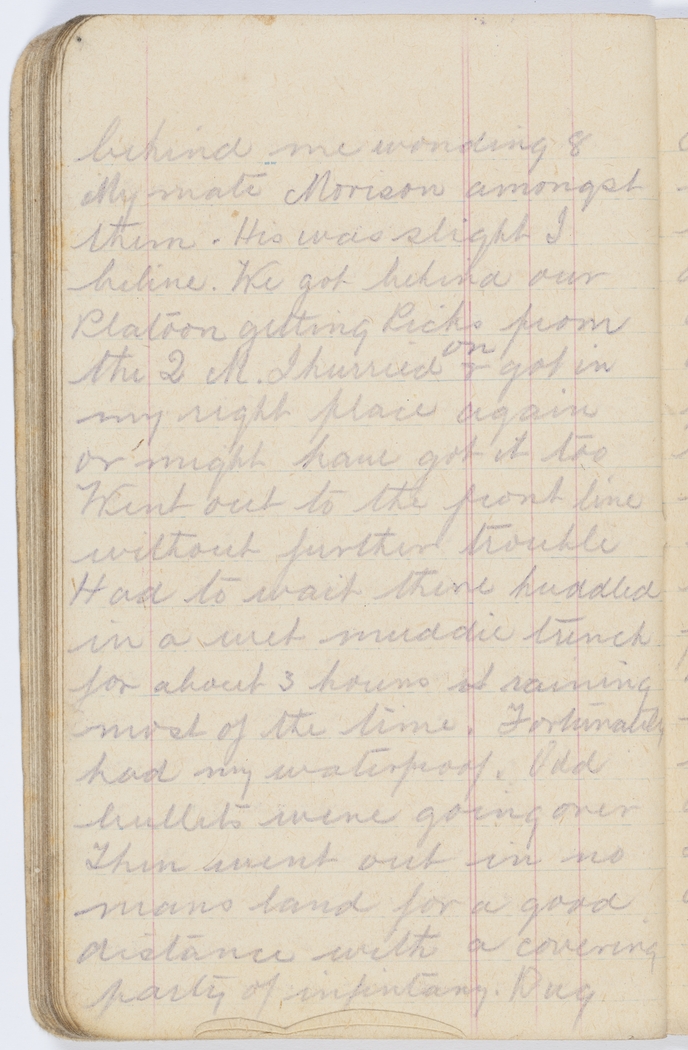 behind me wonding 8
My mate Morison amongst
them. His was slight I
beline. We got behind our
Platoon getting Picks from
the 2 M. I hurried on & got in
my right place again
or might have got it too
Went out to the front line
without further trouble
Had to wait there huddled
in a wet muddie trench
for about 3 hours it raining
most of the time. Fortunately
had my waterproof. Odd
bullets were going over
Then went out in no
mans land for a good
distance with a covering
party of infintany. Dug